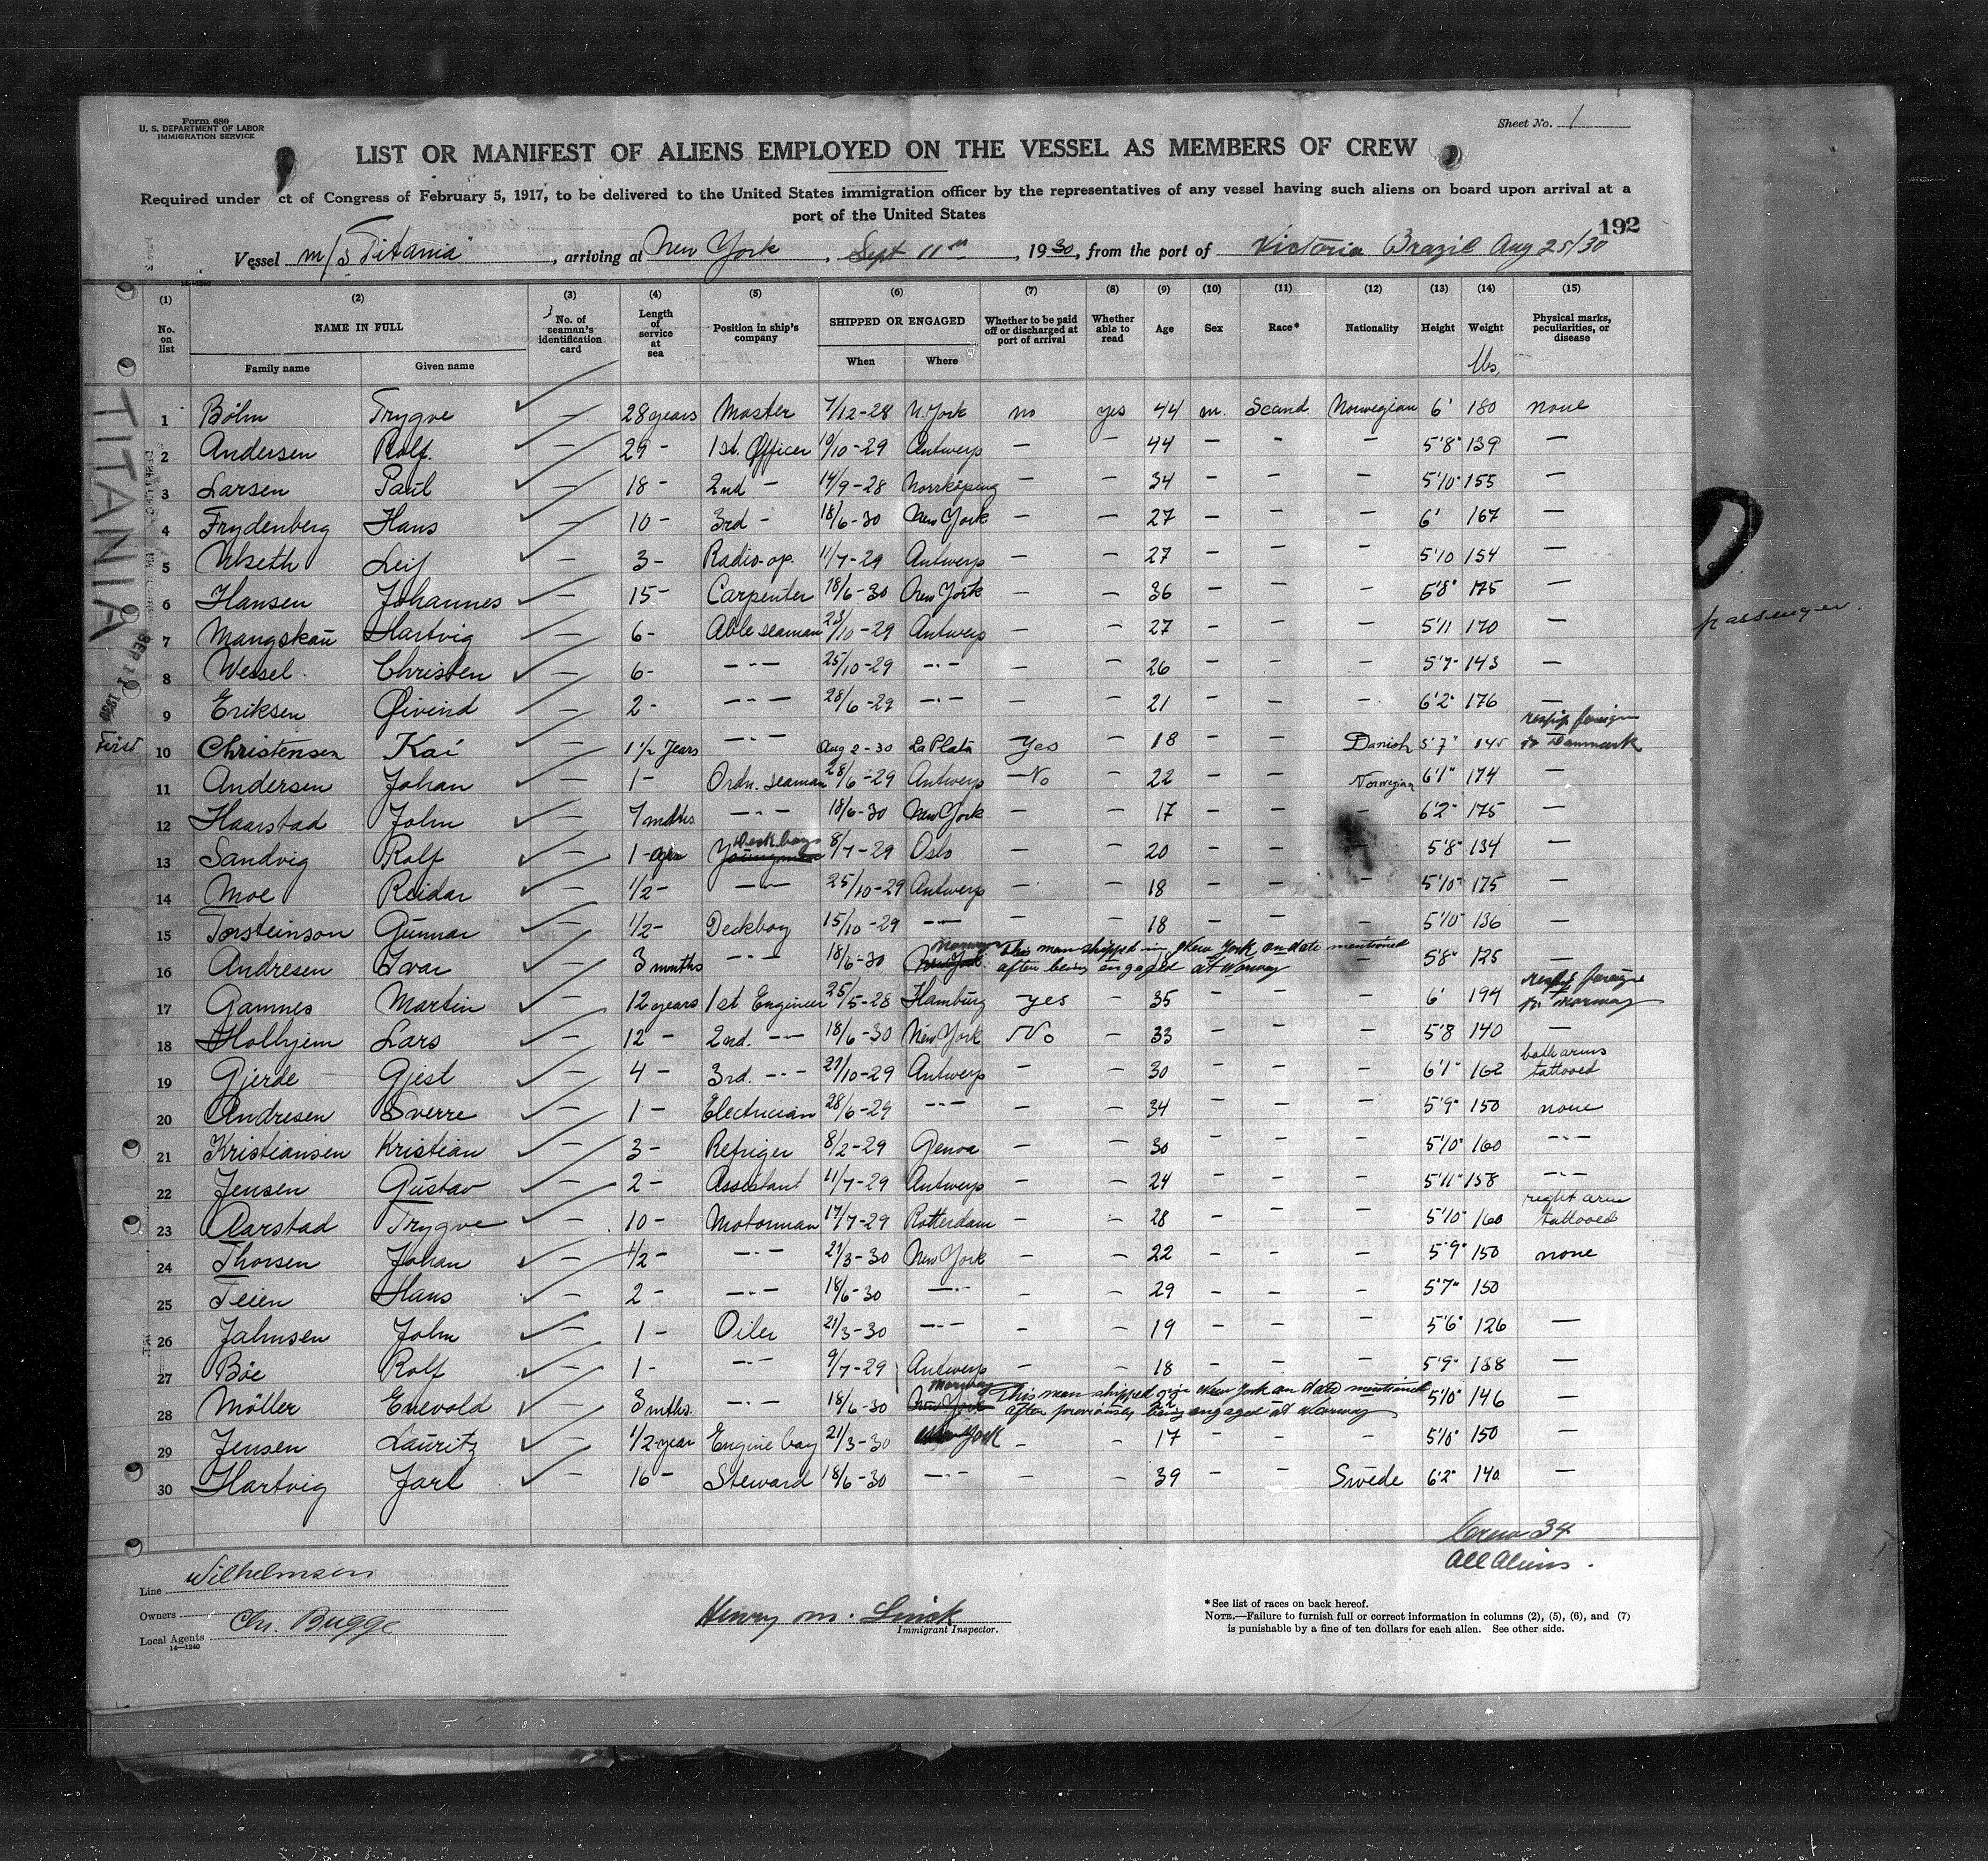 Form 680
U. S. DEPARTMENT OF LABOR
IMMIGRATION SERVICE
Sheet No. 1
LIST OR MANIFEST OF ALIENS EMPLOYED ON THE VESSEL AS MEMBERS OF CREW
Required under ct of Congress of February 5, 1917, to be delivered to the United States immigration officer by the representatives of any vessel having such aliens on board upon arrival at a
port of the United States
192
Vessel m/s Titania, arriving at New York, Sept 11th, 1930, from the port of Victoria Brazil Aug 25/30
14-1240
(1) (2) (3) (4) (5) (6) (7) (8) (9) (10) (11) (12) (13) (14) (15)
No. on list NAME IN FULL No. of seaman's identification card Length of service at sea Position in ship's company SHIPPED OR ENGAGED Whether to be paid off or discharged at port of arrival Whether able to read Age Sex Race* Nationality Height Weight Physical marks, peculiarities, or disease
Family name Given name When Where lbs.
1 Böhm Trygve — 28 years Master 7/12-28 N. York no yes 44 m. Scand. Norwegian 6' 180 none
2 Andersen Rolf. — 29 - 1st. Officer 19/10-29 Antwerp — — 44 - - - 5'8" 139 —
3 Larsen Paul — 18 - 2nd - 14/9-28 Norrköping — — 34 - - - 5'10" 155 —
4 Frydenberg Hans — 10 - 3rd - 18/6-30 New York — — 27 - - - 6' 167 —
5 Leif — 3 - Radio-op. 11/7-29 Antwerp — — 27 - - - 5'10 154 —
6 Hansen Johannes — 15 - Carpenter 18/6-30 New York — — 36 - - - 5'8" 175 —
7 Mangskau Hartvig — 6 - Able seaman 23/10-29 Antwerp — — 27 - - - 5'11 170 —
8 Wessel Christen — 6 - -"- 25/10-29 -"- — — 26 - - - 5'7" 143 —
9 Eriksen Øivind — 2 - -"- 28/6-29 -"- — — 21 - - - 6'2" 176 —
10 Christensen Kai — 1 1/2 years -"- Aug 2-30 La Plata yes — 18 - - Danish 5'7" 145 reship foreign to Danmark
11 Andersen Johan — 1 - Ordn. seaman 28/6-29 Antwerp No — 22 - - Norwegian 6'1" 174 —
12 Haarstad John — 7 mths -"- 18/6-30 New York — — 17 - - - 6'2" 175 —
13 Sandvig Rolf — 1 - Deckboy 8/7-29 Oslo — — 20 - - - 5'8" 134 —
14 Moe Reidar — 1/2 - -"- 25/10-29 Antwerp — — 18 - - - 5'10" 175 —
15 Torsteinson Gunnar — 1/2 - Deckboy 15/10-29 -"- — — 18 - - - 5'10" 136 —
16 Andresen Ivar — 3 months -"- 18/6-30 Norway New York. This man shipped in New York on date mentioned 5'8" 125 —
after being engaged at Norway
17 Gamnes Martin — 12 years 1st Engineer 25/5-28 Hamburg yes — 35 - - - 6' 194 reship foreign to Norway
18 Holhjem Lars — 12 - 2nd. -"- 18/6-30 New York No — 33 - - - 5'8 140 —
19 Gjerde Gjest — 4 - 3rd. -"- 21/10-29 Antwerp — — 30 - - - 6'1" 162 both arms tattooed
20 Andresen Sverre — 1 - Electrician 28/6-29 -"- — — 34 - - - 5'9" 150 none
21 Kristiansen Kristian — 3 - Refriger 8/2-29 Genoa — — 30 - - - 5'10" 160 -"-
22 Jensen Gustav — 2 - Assistant 11/7-29 Antwerp — — 24 - - - 5'11" 158 -"-
23 Aarstad Trygve — 10 - Motorman 17/7-29 Rotterdam — — 28 - - - 5'10" 160 right arm tattooed
24 Thorsen Johan — 1/2 - -"- 21/3-30 New York — — 22 - - - 5'9" 150 none
25 Teien Hans — 2 - -"- 18/6-30 -"- — — 29 - - - 5'7" 150
26 Jahnsen John — 1 - Oiler 21/3-30 -"- — — 19 - - - 5'6" 126 —
27 Böe Rolf — 1 - -"- 9/7-29 Antwerp — — 18 - - - 5'9" 138 —
28 Möller Enevold — 3 mths. -"- 18/6-30 Norway New York This man shipped in New York on date mentioned 5'10" 146 —
after previously being engaged at Norway
29 Jensen Lauritz — 1/2 year Engine boy 21/3-30 New York — — 17 - - - 5'10" 150 —
30 Hartvig Jarl — 16 - Steward 18/6-30 -"- — — 39 - - Swede 6'2" 140 —
TITANIA
SEP 11 1930
First
passenger.
Crew 34
All Aliens.
Line Wilhelmsen
Owners
Local Agents Chr. Bugge
14-1240
Henry M.
Immigrant Inspector.
*See list of races on back hereof.
NOTE.—Failure to furnish full or correct information in columns (2), (5), (6), and (7)
is punishable by a fine of ten dollars for each alien. See other side.